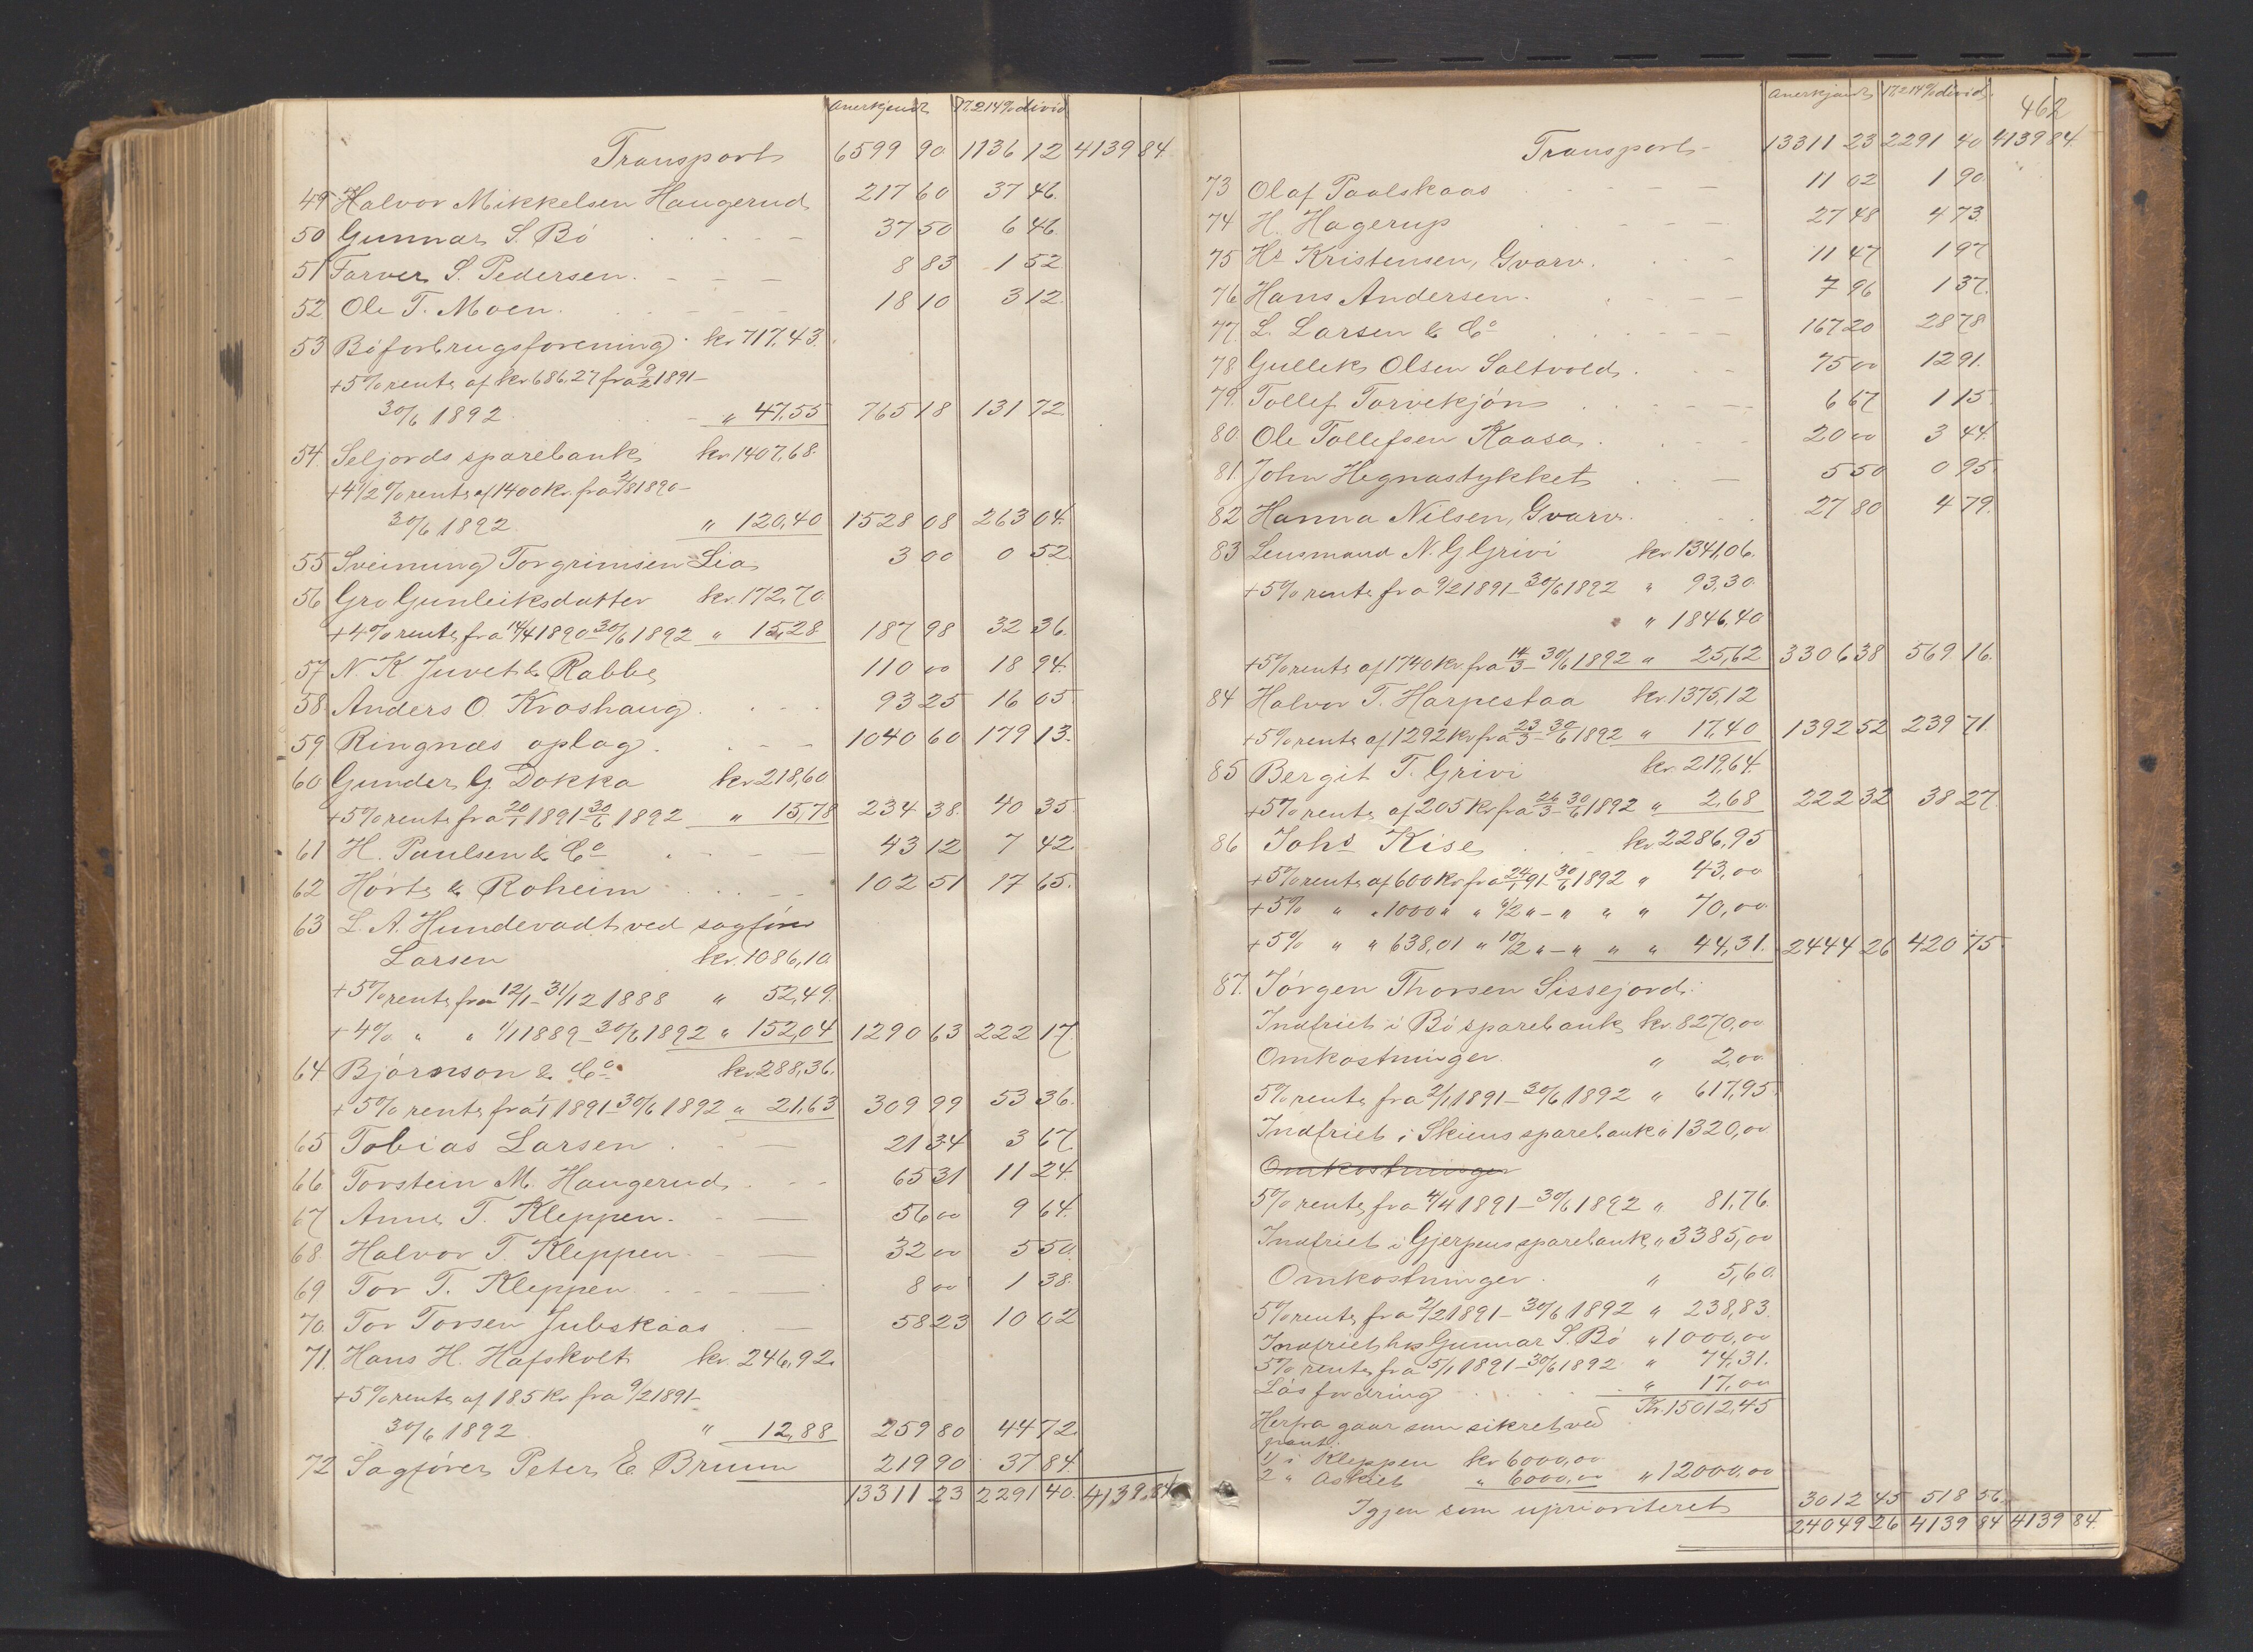 Anerkjendt 17.214% divid.
Transport 6599 90 1136 12 4139 84.
49 Halvor Mikkelsen Haugerud 217 60 37 46.
50 Gunnar S. Bö 37 50 6 46.
51 Farver S. Pedersen. 8 83 1 52.
52 Ole T. Moen. 18 10 3 12.
53 Bö forbrugsforening. kr 717,43.
+ 5% rente af kr 686,27 fra 9/2 1891–
30/6 1892. " 47,55 765 18 131 72.
54. Seljords sparebank kr 1407,68.
+ 4 1/2 % rente af 1400 kr. fra 2/8 1890–
30/6 1892. " 120,40 1528 08 263 04.
55 Sveinung Torgrimsen Lia 3 00 0 52.
56 Gro Gunleiksdatter kr. 172,70.
+ 4% rente fra 14/4 1890–30/6 1892 " 15,28 187 98 32 36.
57 N. K Juvet & Rabbe 110 00 18 94.
58. Anders O. Kroshaug. 93 25 16 05.
59 Ringnæs oplag. 1040 60 179 13.
60 Gunder G. Dokka kr 218,60
+ 5% rente fra 20/1 1891 30/6 1892 " 15,78 234 38. 40 35.
61 H. Paulsen & Co 43 12 7 42.
62 Hørte & Roheim 102 51 17 65.
63 L. A. Hundevadt ved sagfører
Larsen kr. 1086,10
+ 5% rente fra 12/1–31/12 1888 " 52,49.
+ 4% " " 1/1 1889–30/6 1892 " 152,04 1290 63 222 17.
64 Bjørnson & Co. kr. 288,36.
+ 5% rente fra 1/1 1891–30/6 1892 " 21,63 309 99 53 36.
65 Tobias Larsen 21 34 3 67.
66 Torstein M. Haugerud. 65 31 11 24.
67 Anne T. Kleppen. 56 00 9 64.
68. Halvor T. Kleppen. 32 00 5 50.
69 Tor T. Kleppen 8 00 1 38.
70. Tor Torsen Jubskaas 58 23 10 02
71. Hans H. Hafskolt kr. 246,92.
+ 5% rente af 185 kr fra 9/2 1891–
30/6 1892. " 12,88 259 80 44 72.
72 Sagfører Peter E. Bruun 219 90 37 84.
13311 23 2291 40. 4139,84.
462
Anerkjendt 17.214% divid.
Transport 13311 23 2291 40 4139 84.
73 Olaf Paalskaas 11 02 1 90.
74 H. Hagerup 27 48 4 73.
75 Hs Kristensen, Gvarv. 11 47 1 97
76 Hans Andersen. 7 96 1 37.
77. L. Larsen & Co 167 20 28 78
78 Gullek Olsen Saltvold. 75 00 12 91.
79. Tollef Torvekjøn 6 67 1 15.
80. Ole Tollefsen Kaasa. 20 00 3 44.
81. John Hegnastykket 5 50 0 95.
82 Hanna Nilsen, Gvarv. 27 80 4 79.
83 Lensmand N. G Grivi kr 1341,06.
+ 5% rente fra 9/2 1891–30/6 1892 " 93,30.
" 1846,40
+ 5% rente af 1740 kr. fra 14/3–30/6 1892 " 25,62 3306 38 569 16.
84 Halvor T. Harpestaa kr. 1375,12
+ 5% rente af 1292 kr fra 23/3–30/6 1892 " 17,40 1392 52 239 71.
85 Bergit T. Grivi kr. 219,64.
+ 5% rente af 205 kr fra 26/3–30/6 1892 " 2,68 222 32 38 27.
86 Johs Kise kr 2286,95
+ 5% rente af 600 kr fra 24/1 91–30/6 1892 " 43,00
+ 5% " " 1000 " " 6/2 "–" " " 70,00.
+ 5% " " 638,01 " 10/2 "–" " " 44,31. 2444 26 420 75.
87. Jörgen Thorsen Sissejord:
Indfriet i Bö sparebank kr. 8270,00
Omkostninger. " 2,00.
5% rente fra 2/1 1891–30/6 1892 " 617,95.
Indfriet i Skiens sparebank " 1320,00
Omkostninger
5% rente fra 4/4 1891–30/6 1892 " 81,76.
Indfriet i Gjerpens sparebank " 3385,00
Omkostninger. " 5,60.
5% rente fra 2/2 1891–30/6 1892 " 238,83.
Indfriet hos Gunnar S. Bö " 1000,00
5% rente fra 5/1 1891–30/6 1892. " 74,31.
Løs fordring " 17,00
Kr. 15012,45
Herfra gaar som sikret ved
pant:
1) i Kleppen kr 6000,00
2 " Askiet " 6000,00 " 12000,00
Igjen som uprioriteret 3012 45 518 56.
24049 26 4139 84 4139 84.